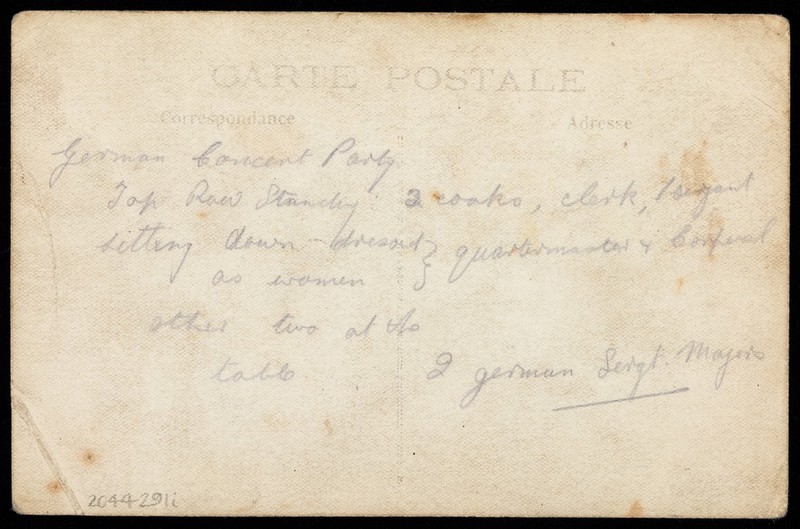 CARTE POSTALE
Correspondance Adresse
German Concert Party
Top Row Standing: 2 cooks, clerk, 1 sergant
Sitting down - dressed } quartermaster & Corporal
as women
other two at the
table 2 german Sergt. Majors
2044-291i